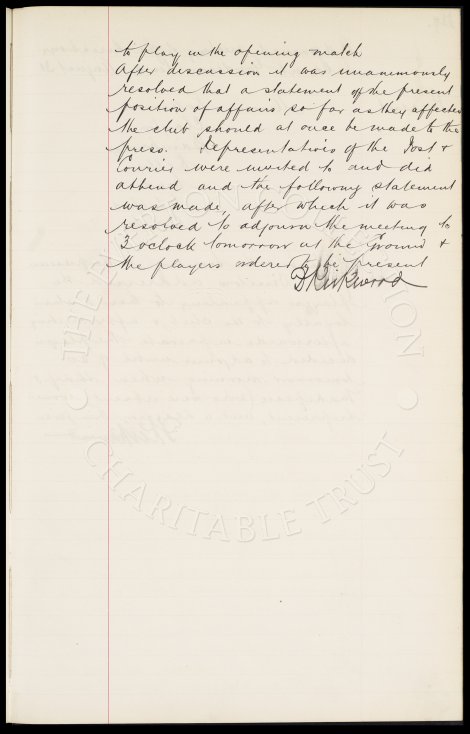 to play in the opening match
After discussion it was unanimously
resolved that a statement of the present
position of affairs so far as they affected
the club should at once be made to the
press. Representatives of the Post &
Courier were invited to and did
attend and the following statement
was made, after which it was
resolved to adjourn the meeting to
3 oclock tomorrow at the ground &
the players ordered to be present
D Kirkwood
CHARITABLE TRUST